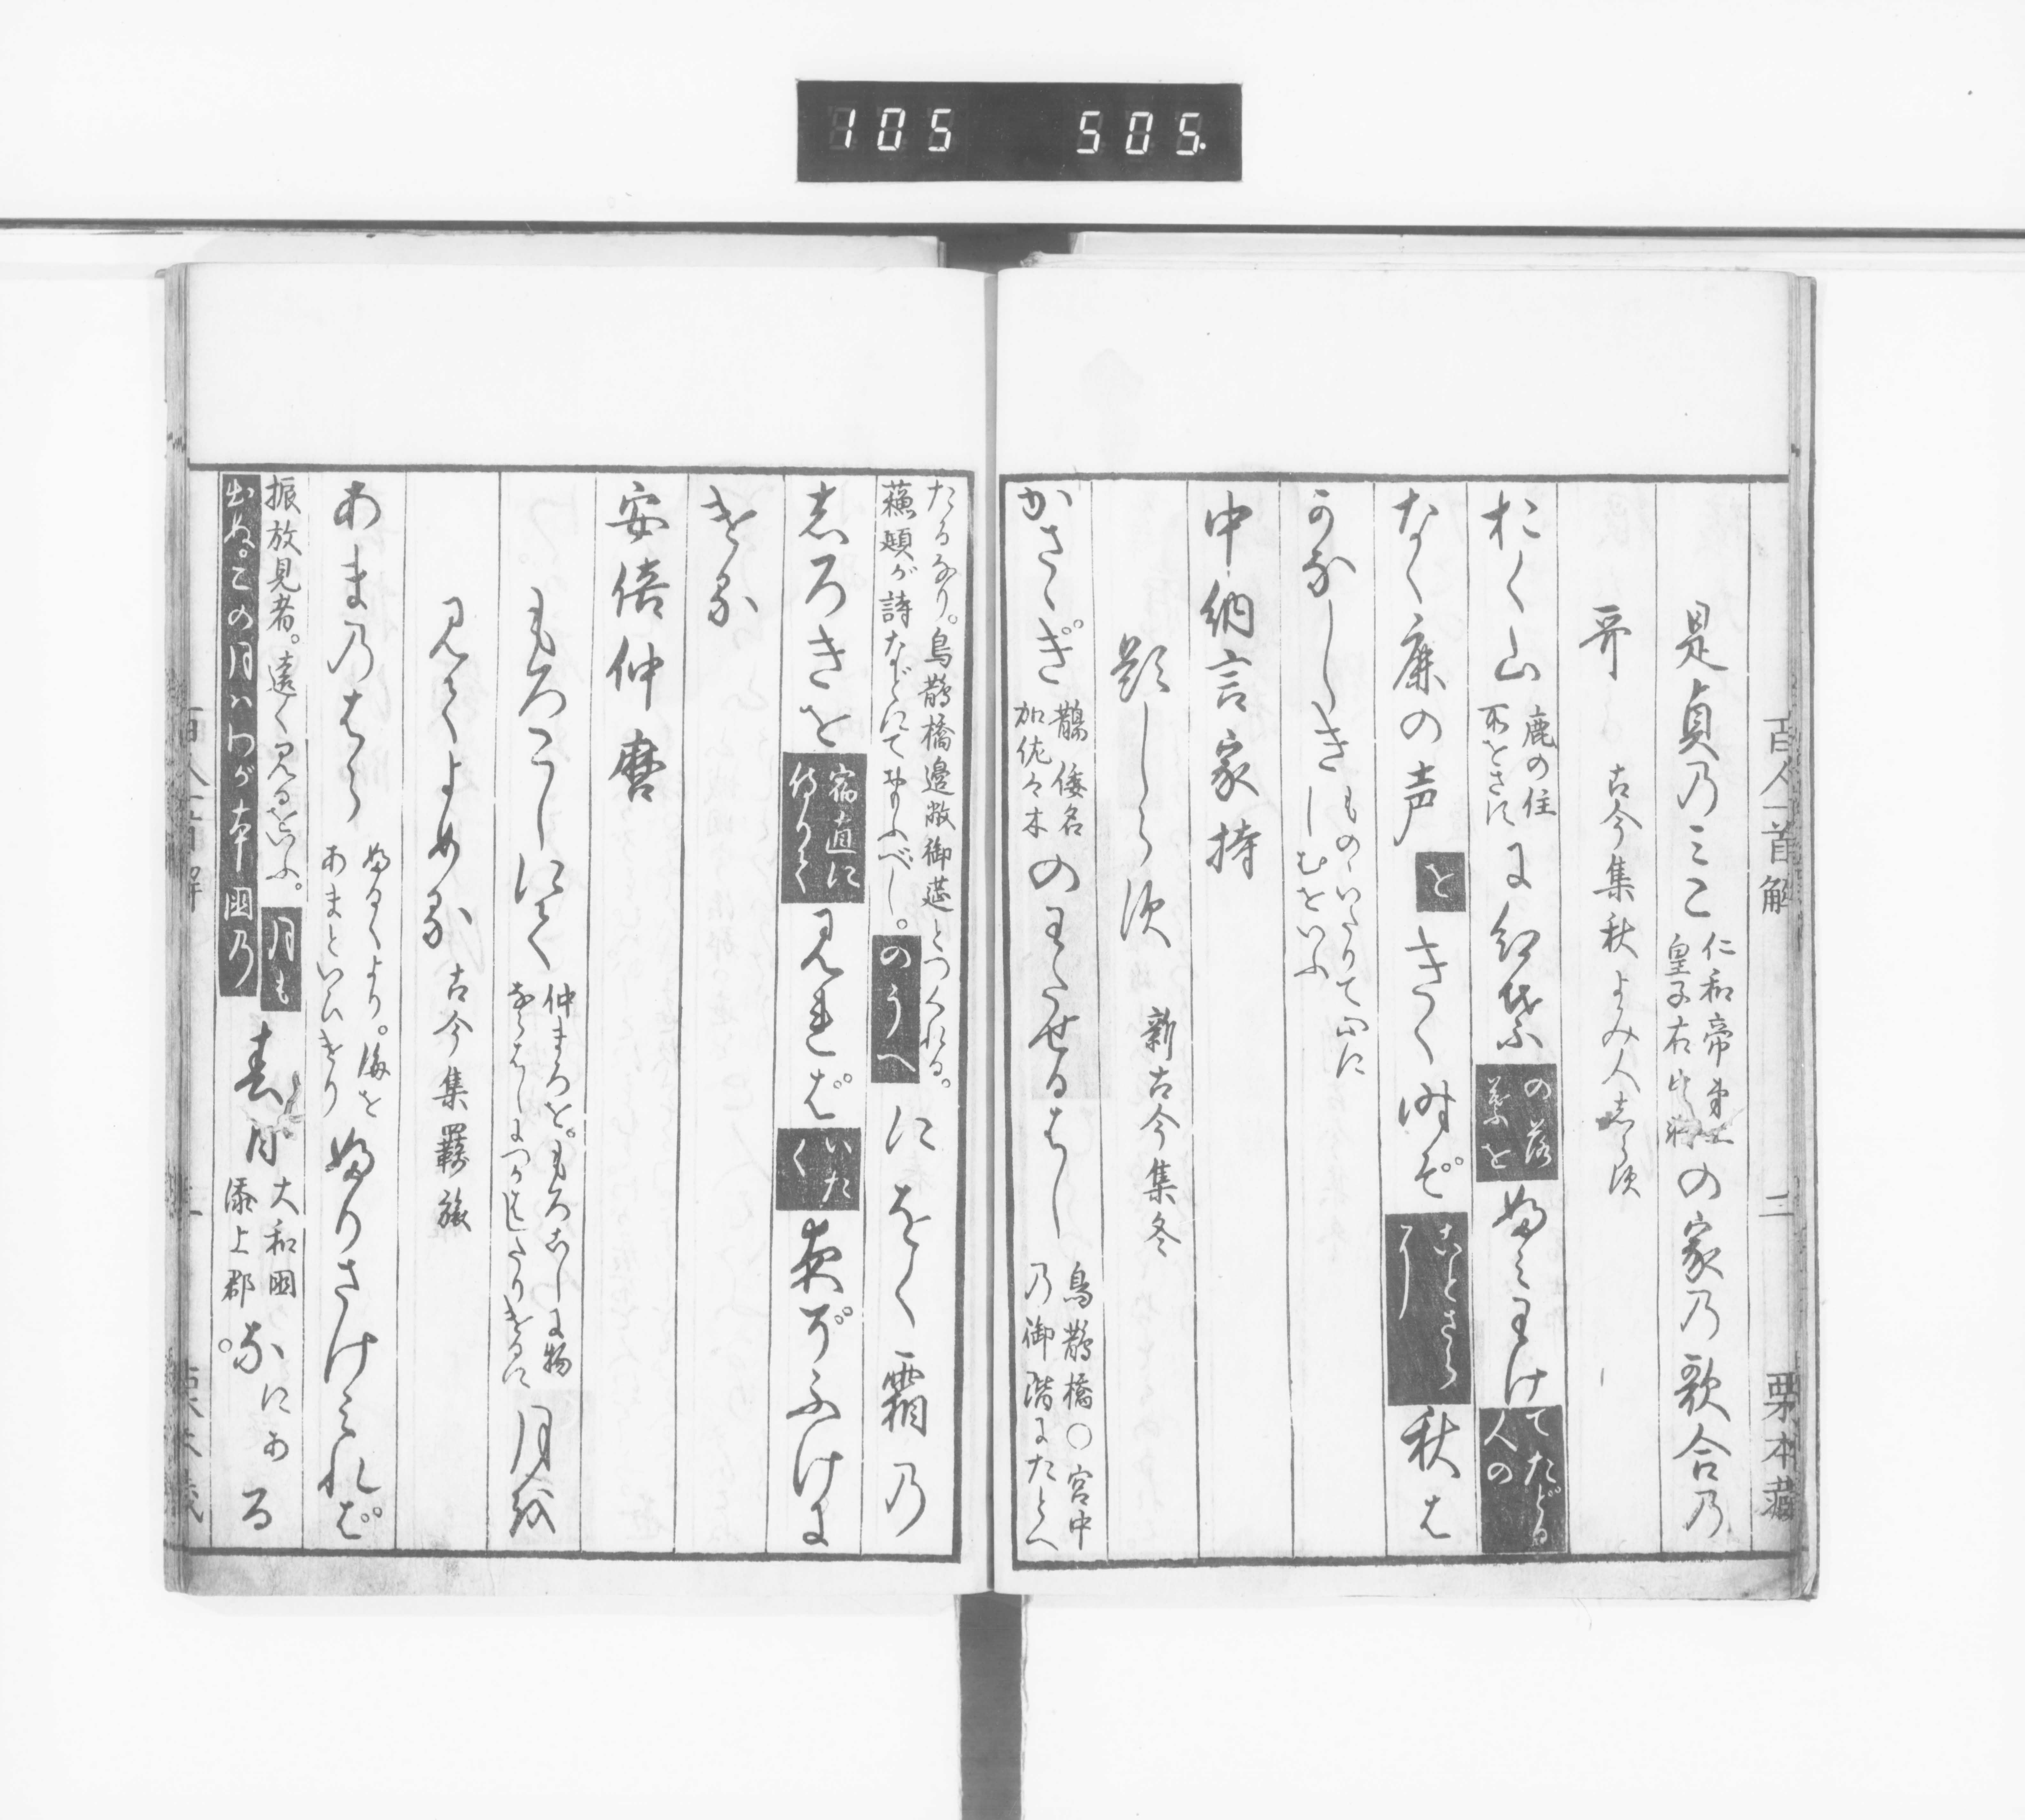 105 505.
百人一首解 三 栗本蔵
是貞乃みこ 仁和帝第二皇子右 の家乃歌合乃
哥 古今集秋 よみ人志らす
おく山 鹿の住所をさす に紅葉 の落葉を ふみわけ てたどる人の
なく鹿の声 を きく時ぞ ことさらに 秋は
かなしき ものゝいたりて心にしむをいふ
中納言家持
題しらす 新古今集冬
かさゝぎ 鵲 倭名加佐々木 のわたせるはし 烏鵲橋○宮中乃御階にたとへ
たるなり。烏鵲橋邊敞御筵とつくれる。
蘇頲が詩などにておもふべし。 のうへ にをく霜乃
志ろきを 宿直に侍りて 見れば いたく 夜ぞふけに
ける
安倍仲麿
もろこしにて 仲まろを。もろこしに物ならはしにつかはしたりけるに 月を
見てよめる 古今集羇旅
あま乃はら ふるくより。海をあまといひけり ふりさけみれば
振放見者。遠く見るをいふ。 月も
出ぬ。この月ハわが本国乃 春日 大和国添上郡 なにある。